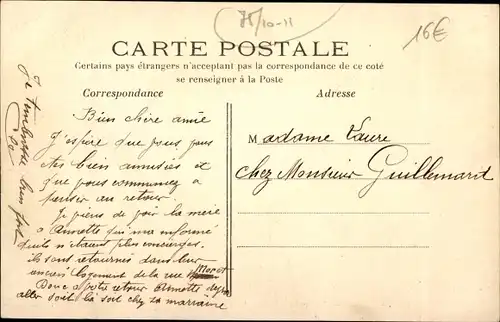 75/10-11
16€
CARTE POSTALE
Certains pays étrangers n'acceptant pas la correspondance de ce coté
se renseigner à la Poste
Correspondance
Adresse
Bien chère amie
J'espère que vous vous
êtes bien amusées et
que vous commencez à
penser au retour.
Je viens de voir la mère
à Annette qui m'a informé
qu'ils n'étaient plus concierges.
ils sont retournés dans leur
ancien logement de la rue Morot
Donc à votre retour Annette
aller soit là soit chez sa marraine
Je t'embrasse bien fort
Madame Laure
chez Monsieur Guillemard